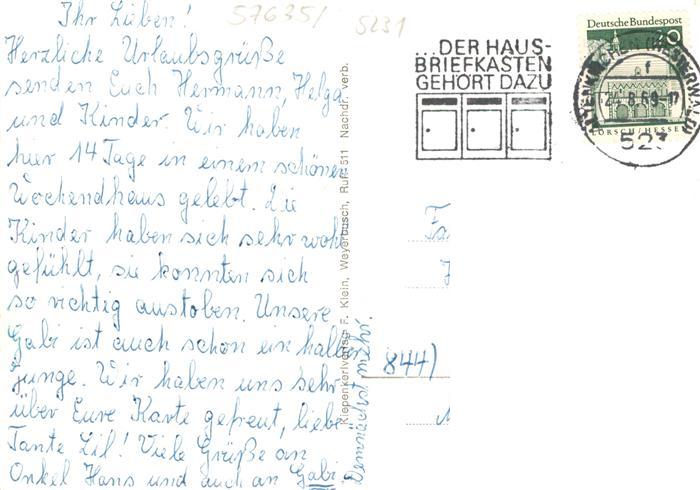 57635/
5231
Ihr Lieben!
Herzliche Urlaubsgrüße
senden Euch Hermann, Helga
und Kinder. Wir haben
hier 14 Tage in einem schönen
Wochendhaus gelebt. Die
Kinder haben sich sehr wohl
gefühlt, sie konnten sich
so richtig austoben. Unsere
Gabi ist auch schon ein halber
Junge. Wir haben uns sehr
über Eure Karte gefreut, liebe
Tante Lil! Viele Grüße an
Onkel Hans und auch an Gabi.
Demnächst mehr.
Kiepenkerlverlag F. Klein, Weyerbusch, Ruf 511 Nachdr. verb.
...DER HAUS-
BRIEFKASTEN
GEHÖRT DAZU
Deutsche Bundespost
20
LORSCH/HESSEN
523
Fa
844)